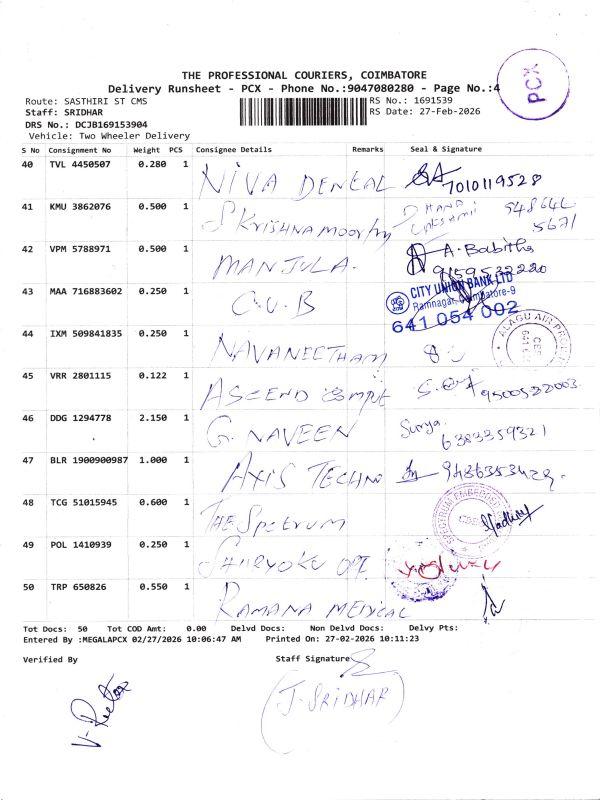 THE PROFESSIONAL COURIERS, COIMBATORE
Delivery Runsheet - PCX - Phone No.:9047080280 - Page No.:4
PCX
Route: SASTHIRI ST CMS
RS No.: 1691539
Staff: SRIDHAR
RS Date: 27-Feb-2026
DRS No.: DCJB169153904
Vehicle: Two Wheeler Delivery
S No Consignment No Weight PCS Consignee Details Remarks Seal & Signature
40 TVL 4450507 0.280 1 NIVA DENTAL 7010119528
41 KMU 3862076 0.500 1 S KRISHNAMOORTHY DHANA LAKSHMI 948646 5671
42 VPM 5788971 0.500 1 MANJULA. A. Babitha 9159532220
43 MAA 716883602 0.250 1 C.U.B CITY UNION BANK LTD
Ramnagar, Coimbatore-9
641 054 002
44 IXM 509841835 0.250 1 NAVANEETHAM
ALAGU AIR
45 VRR 2801115 0.122 1 ASCEND COMPUT 9500522003
46 DDG 1294778 2.150 1 G. NAVEEN Surya. 6383359321
47 BLR 1900900987 1.000 1 AXIS TECHNO 9486353429.
48 TCG 51015945 0.600 1 THE SPECTRUM
SPECTRUM
49 POL 1410939 0.250 1 SHURYOKU OPE
50 TRP 650826 0.550 1 RAMANA MEDICAL
Tot Docs: 50 Tot COD Amt: 0.00 Delvd Docs: Non Delvd Docs: Delvy Pts:
Entered By :MEGALAPCX 02/27/2026 10:06:47 AM Printed On: 27-02-2026 10:11:23
Verified By Staff Signature
(J. SRIDHAR)